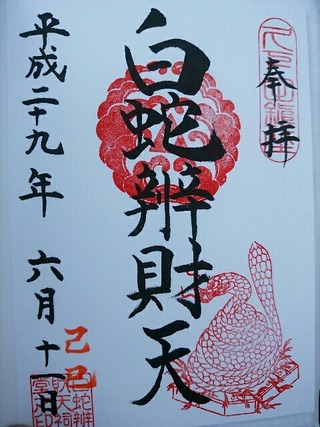 奉拝
白蛇辨財天
平成二十九年 六月十一日
己巳